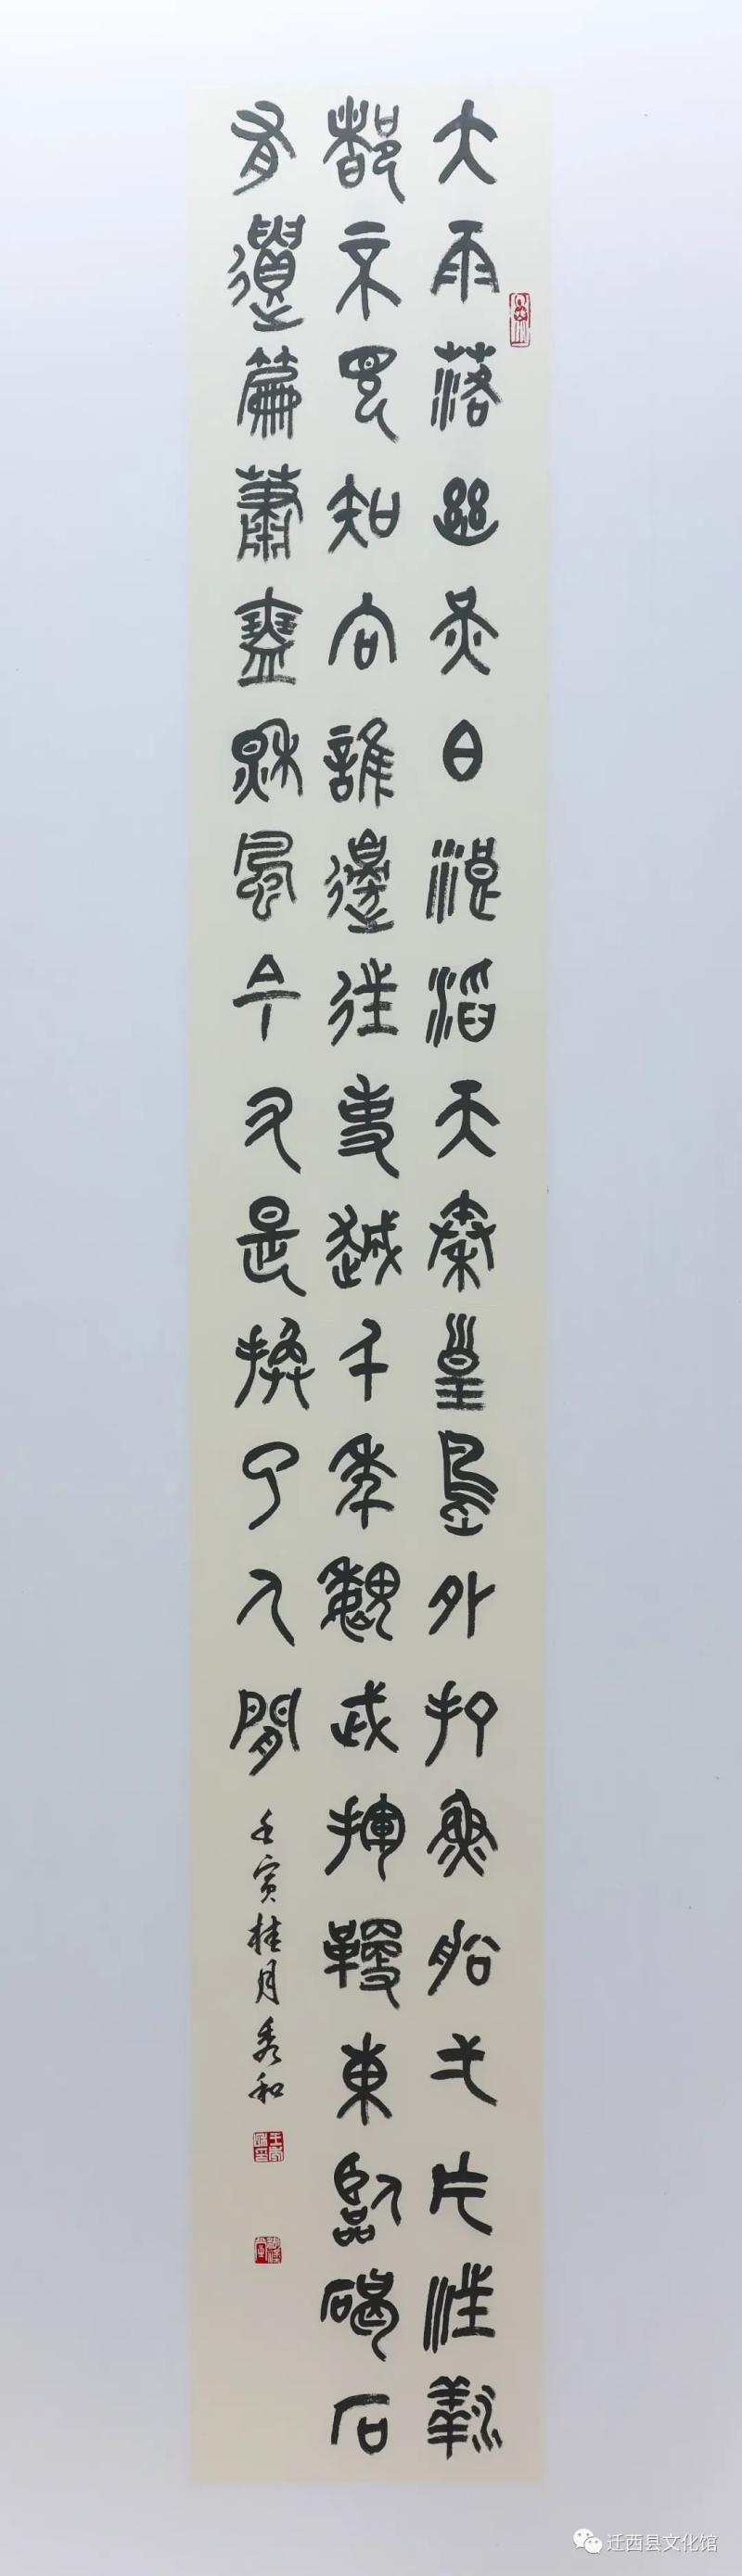 大雨落幽燕白浪滔天秦皇島外打魚船一片汪洋
都不見知向誰邊往事越千年魏武揮鞭東臨碣石
有遺篇蕭瑟秋風今又是換了人間
壬寅桂月秀和
迁西县文化馆